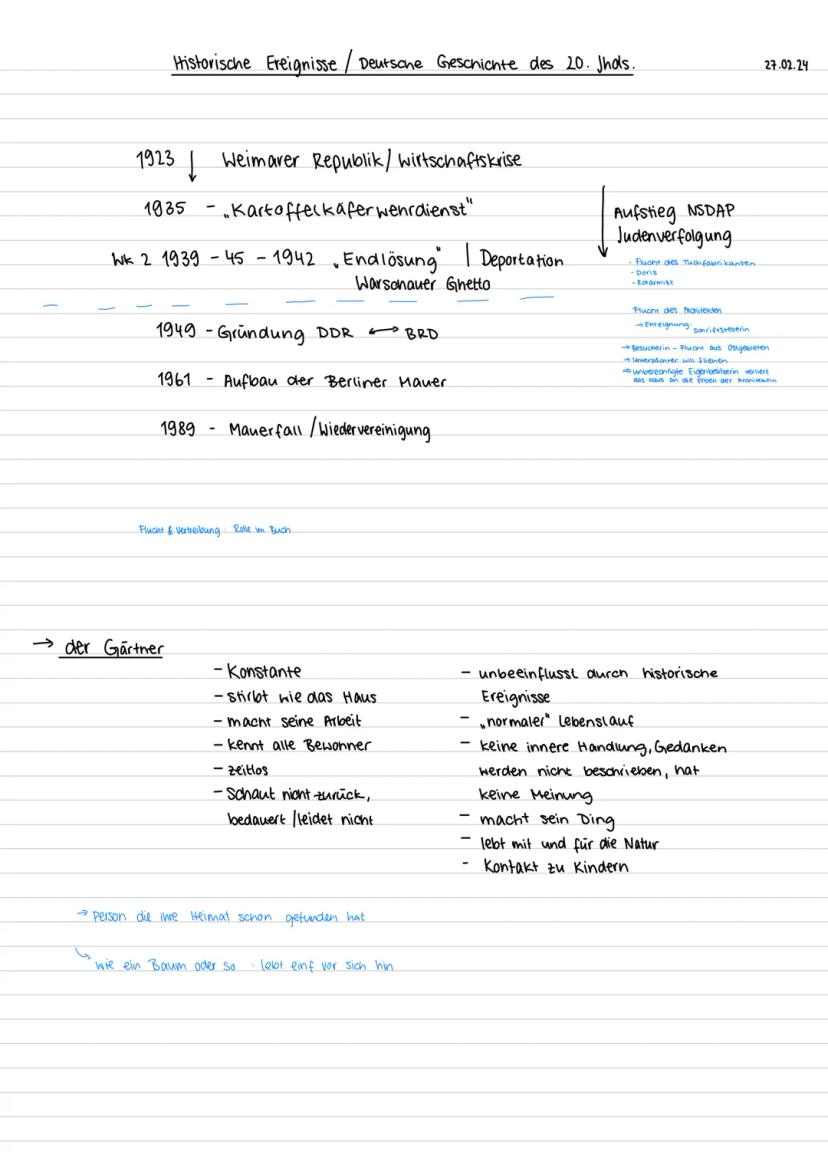 Historische Ereignisse / Deutsche Geschichte des 20. Jhds.
27.02.24
1923 ↓ Weimarer Republik / Wirtschaftskrise
1935 - „Kartoffelkäferwehrdienst"
Aufstieg NSDAP
Judenverfolgung
Wk 2 1939 - 45 - 1942 „Endlösung" | Deportation
Warschauer Ghetto
- Flucht des Tuchfabrikanten
- Doris
- Rotarmist
Flucht des Architekten
→ Enteignung: Schriftstellerin
→ Besucherin - Flucht aus Ostgebieten
→ Unterpächter will fliehen
→ unberechtigte Eigenbesitzerin verliert
das Haus an die Erben der Architektin
1949 - Gründung DDR ↔ BRD
1961 - Aufbau der Berliner Mauer
1989 - Mauerfall / Wiedervereinigung
Flucht & Vertreibung: Rolle im Buch
→ der Gärtner
- Konstante
- stirbt wie das Haus
- macht seine Arbeit
- kennt alle Bewohner
- zeitlos
- schaut nicht zurück,
bedauert / leidet nicht
- unbeeinflusst durch historische
Ereignisse
- „normaler" Lebenslauf
- keine innere Handlung, Gedanken
werden nicht beschrieben, hat
keine Meinung
- macht sein Ding
- lebt mit und für die Natur
- Kontakt zu Kindern
→ Person die ihre Heimat schon gefunden hat
↳ wie ein Baum oder so : lebt einf vor sich hin